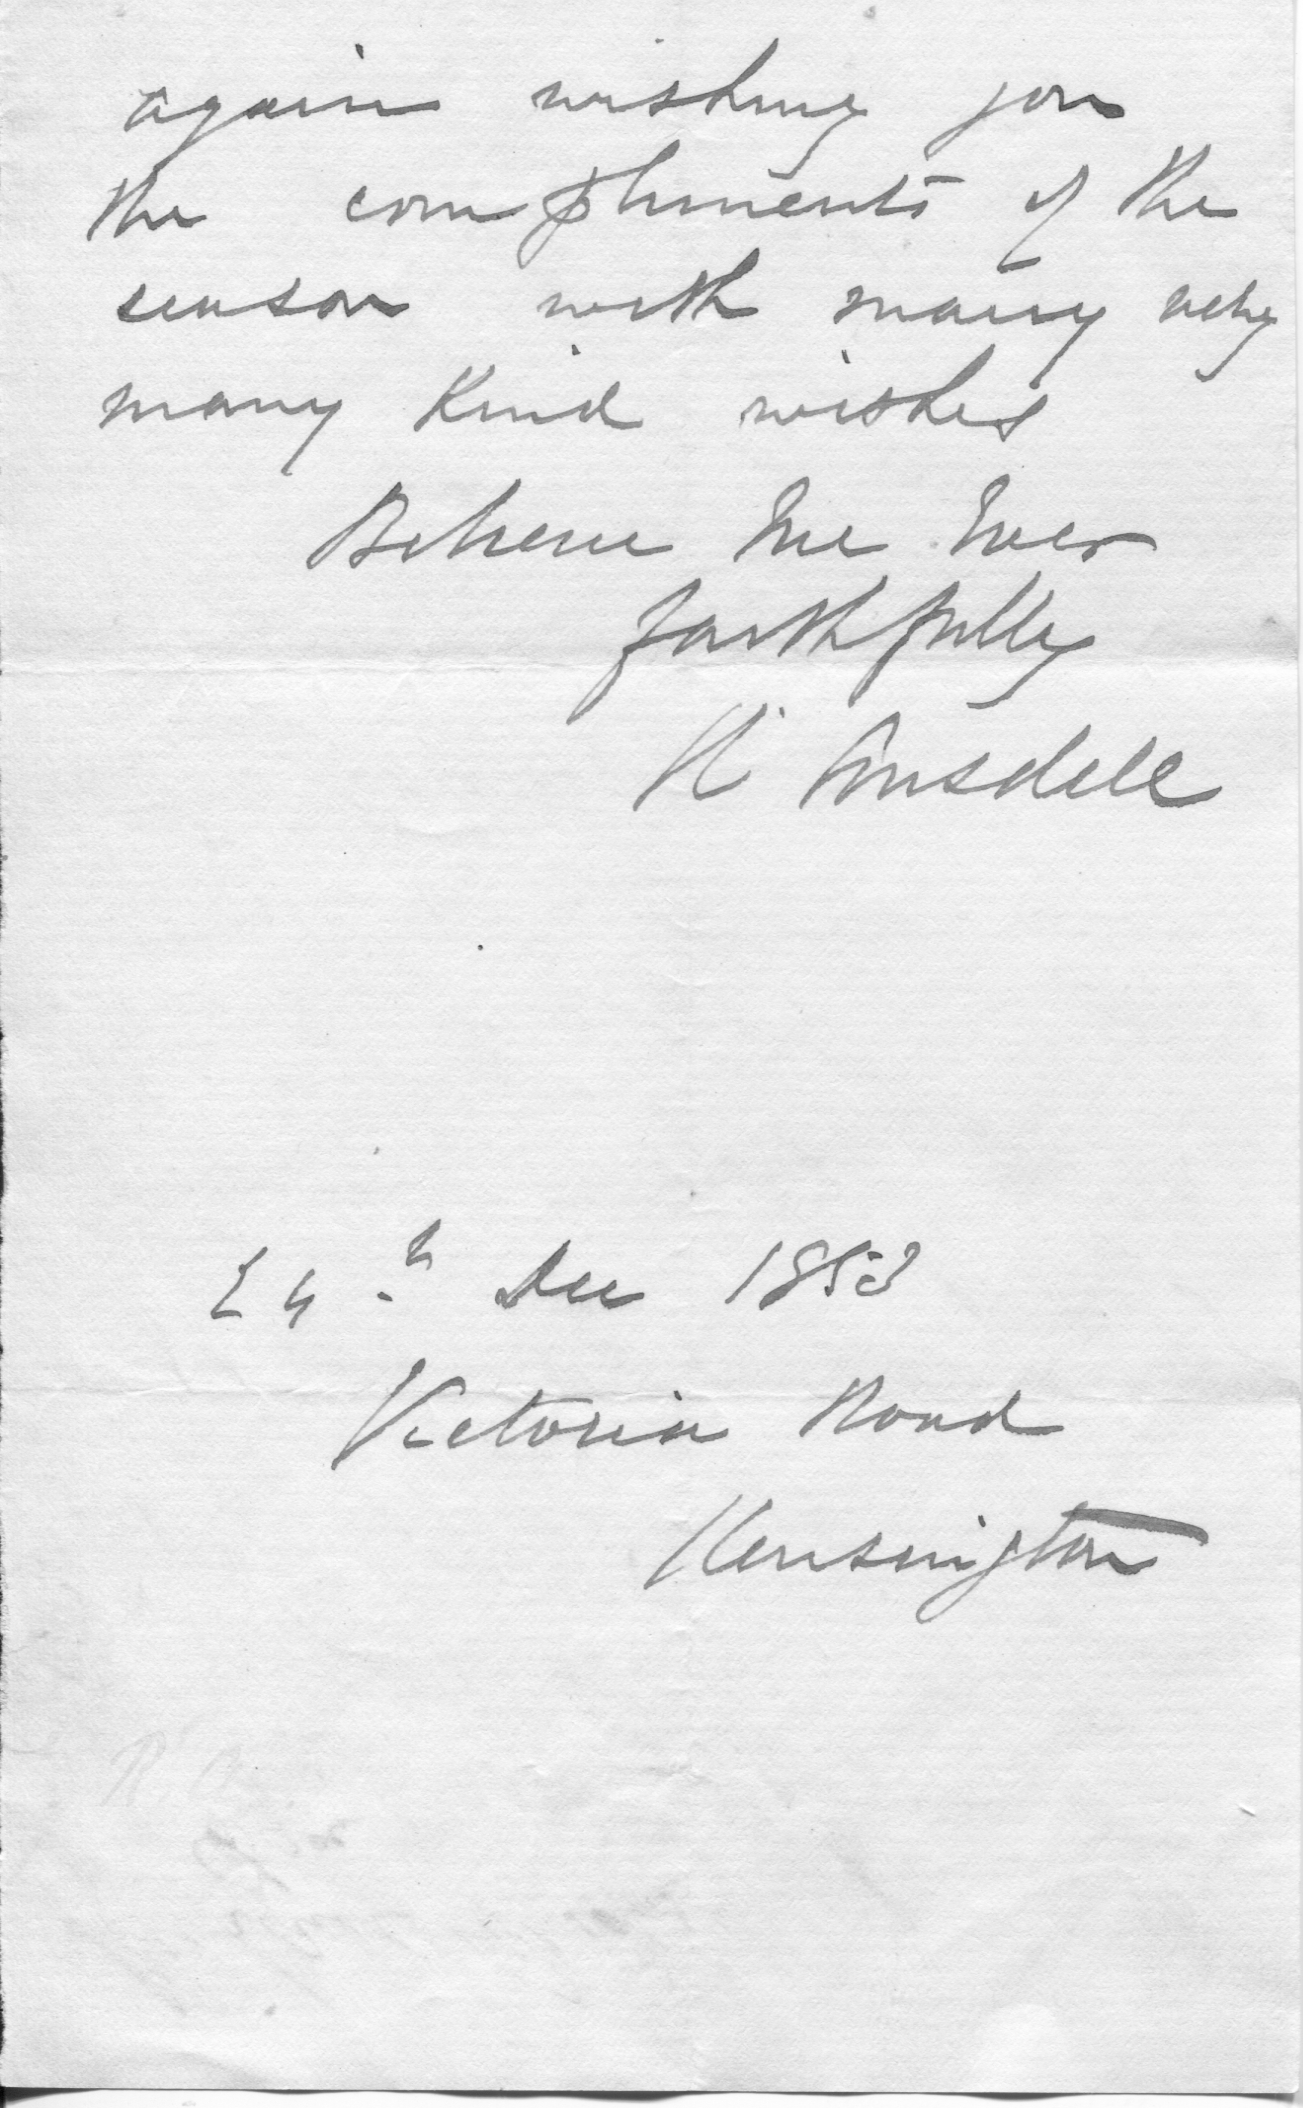 again wishing you
the compliments of the
season with many very
many Kind wishes
Believe Me Ever
faithfully
R Ansdell
24th Dec 1853
Victoria Road
Kensington